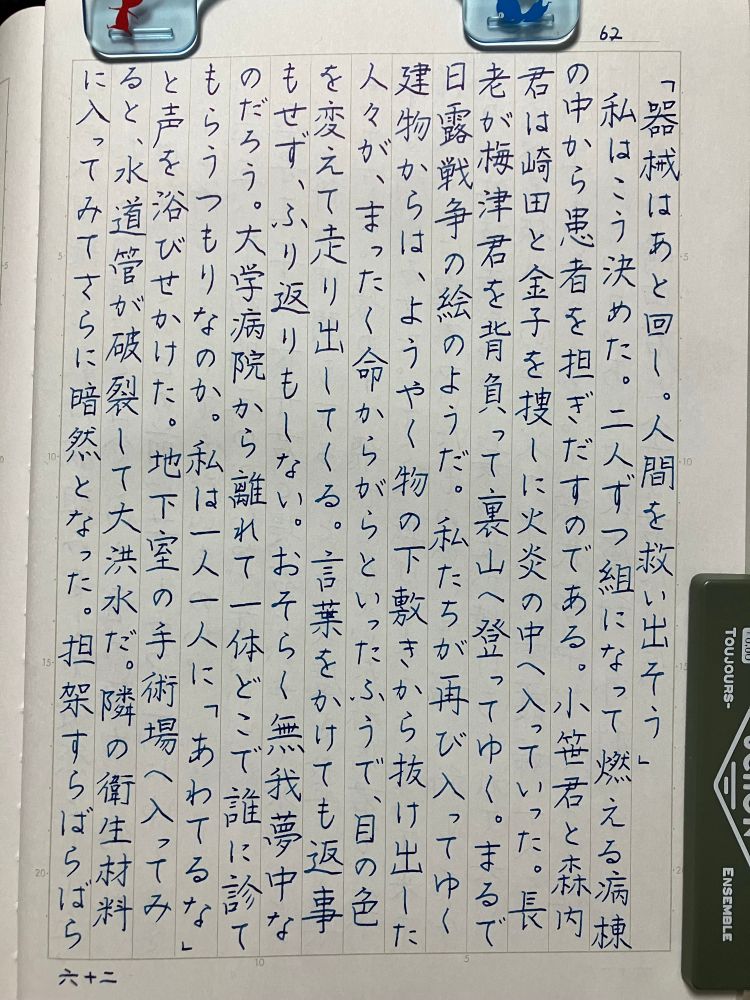 62
「器械はあと回し。人間を救い出そう」
私はこう決めた。二人ずつ組になって燃える病棟
の中から患者を担ぎだすのである。小笹君と森内
君は崎田と金子を捜しに火炎の中へ入っていった。長
老が梅津君を背負って裏山へ登ってゆく。まるで
日露戦争の絵のようだ。私たちが再び入ってゆく
建物からは、ようやく物の下敷きから抜け出した
人々が、まったく命からがらといったふうで、目の色
を変えて走り出してくる。言葉をかけても返事
もせず、ふり返りもしない。おそらく無我夢中な
のだろう。大学病院から離れて一体どこで誰に診て
もらうつもりなのか。私は一人一人に「あわてるな」
と声を浴びせかけた。地下室の手術場へ入ってみ
ると、水道管が破裂して大洪水だ。隣の衛生材料
に入ってみてさらに暗然となった。担架すらばらばら
六十二
5
10
15
20
10
5
5
10
15
TOUJOURS-
ENSEMBLE